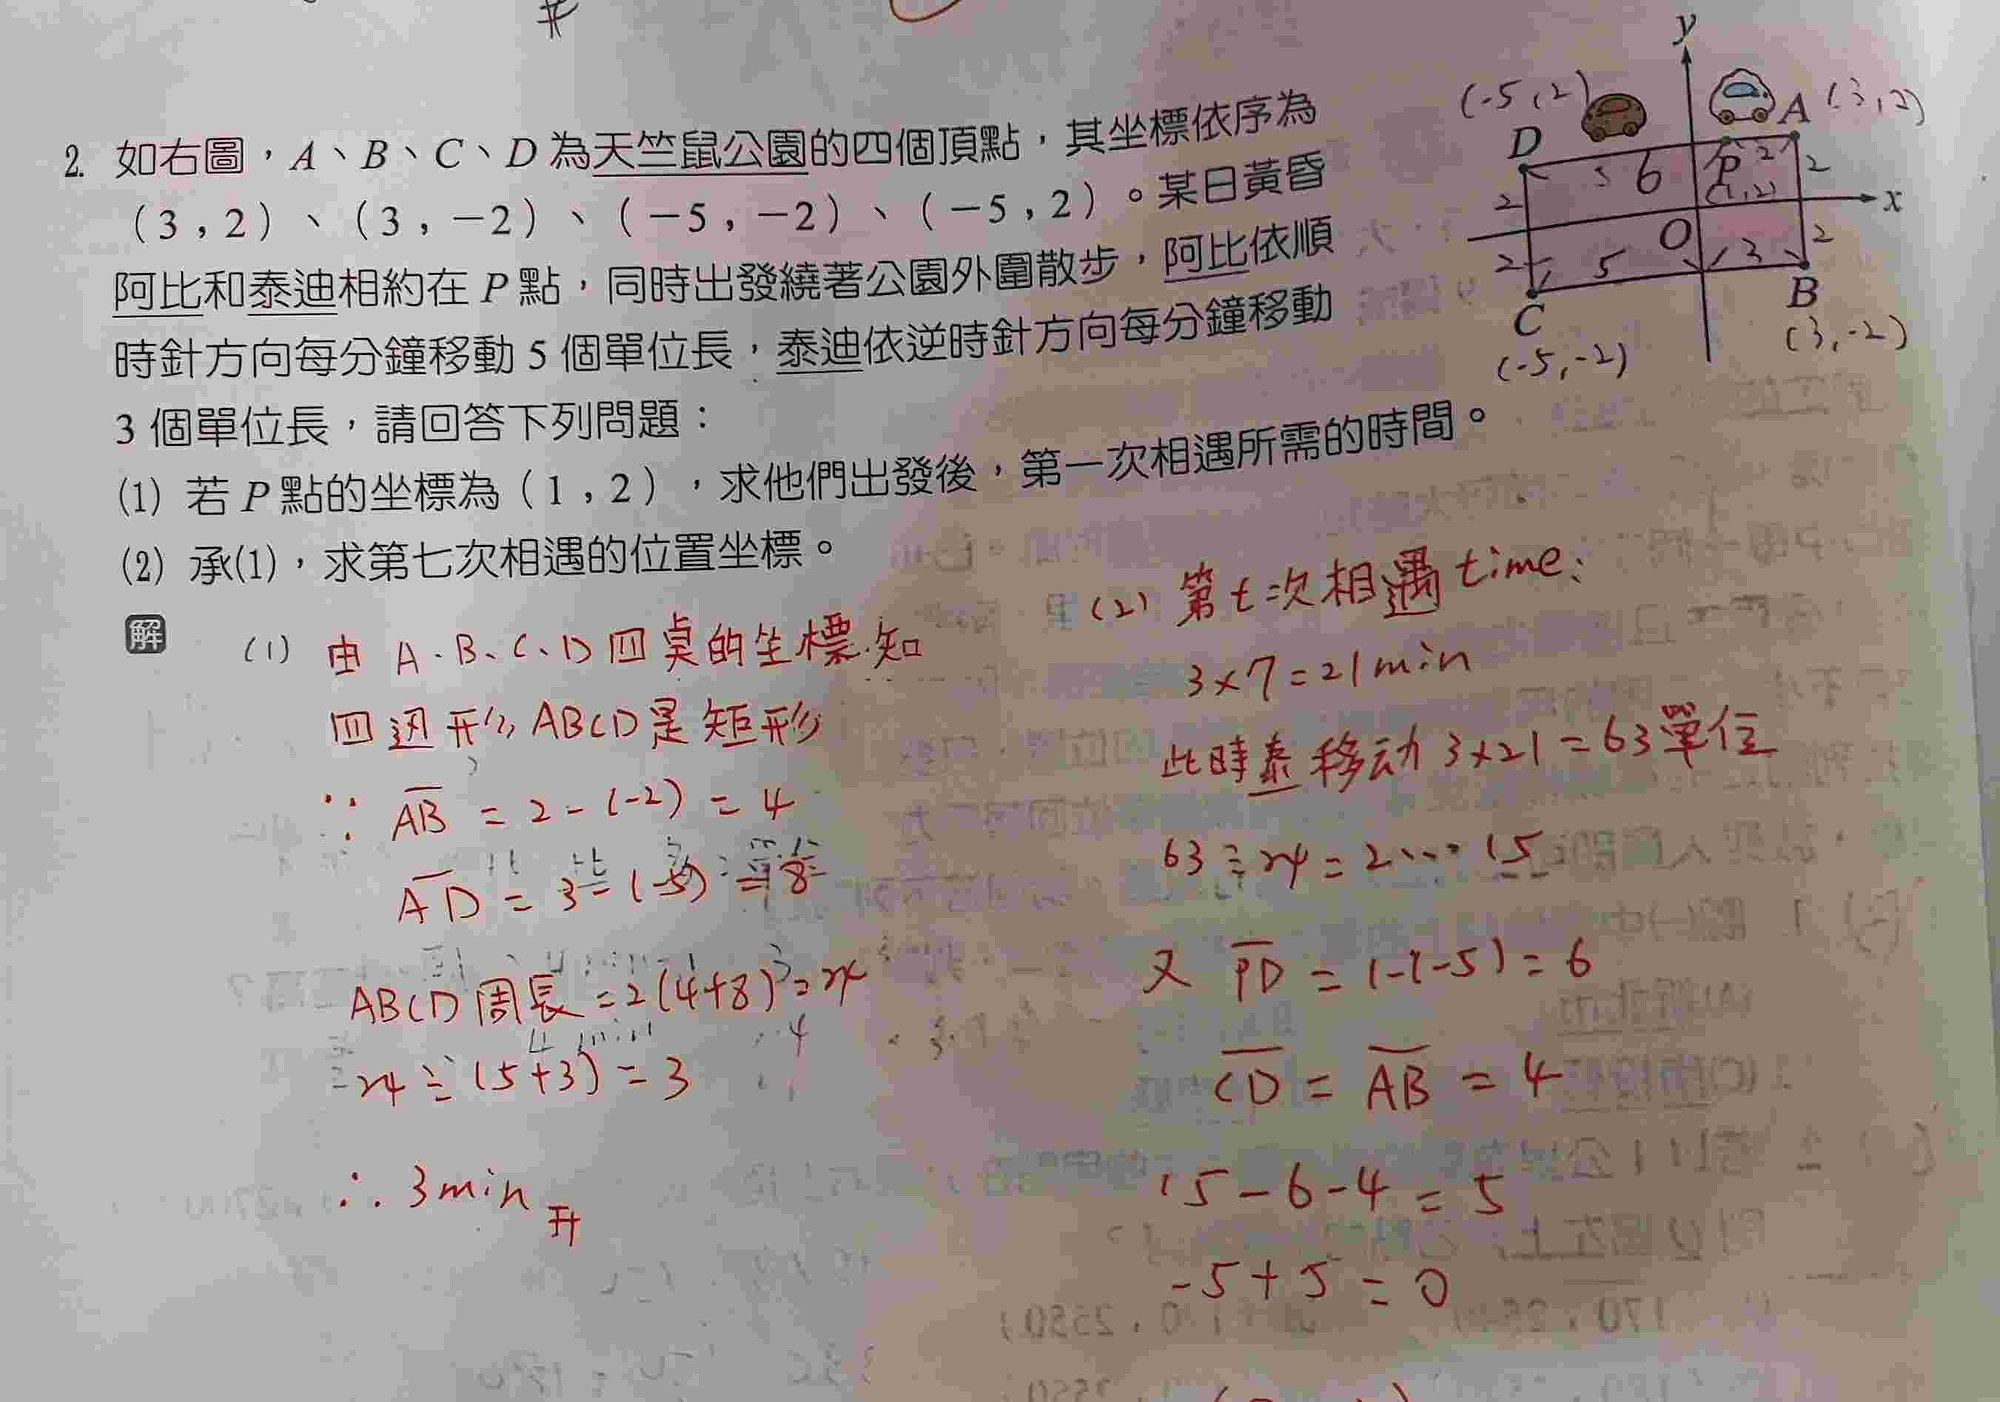 y
(-5,2)
A (3,2)
D
5 6 P 2
2 (1,2) 2
x
O
2 5 3 2
C B
(-5,-2) (3,-2)
2. 如右圖，A、B、C、D為天竺鼠公園的四個頂點，其坐標依序為
(3，2)、(3，－2)、(－5，－2)、(－5，2)。某日黃昏
阿比和泰迪相約在P點，同時出發繞著公園外圍散步，阿比依順
時針方向每分鐘移動5個單位長，泰迪依逆時針方向每分鐘移動
3個單位長，請回答下列問題：
(1) 若P點的坐標為(1，2)，求他們出發後，第一次相遇所需的時間。
(2) 承(1)，求第七次相遇的位置坐標。
解
(1) 由 A、B、C、D四點的坐標知
四边形 ABCD是矩形
∵ AB = 2-(-2) = 4
AD = 3-(-5) = 8
ABCD 周長=2(4+8)=24
24÷(5+3)=3
∴ 3min
(2) 第七次相遇time:
3×7=21min
此時泰移动3×21=63單位
63÷24=2…15
又 PD = 1-(-5) = 6
CD = AB = 4
15-6-4=5
-5+5=0